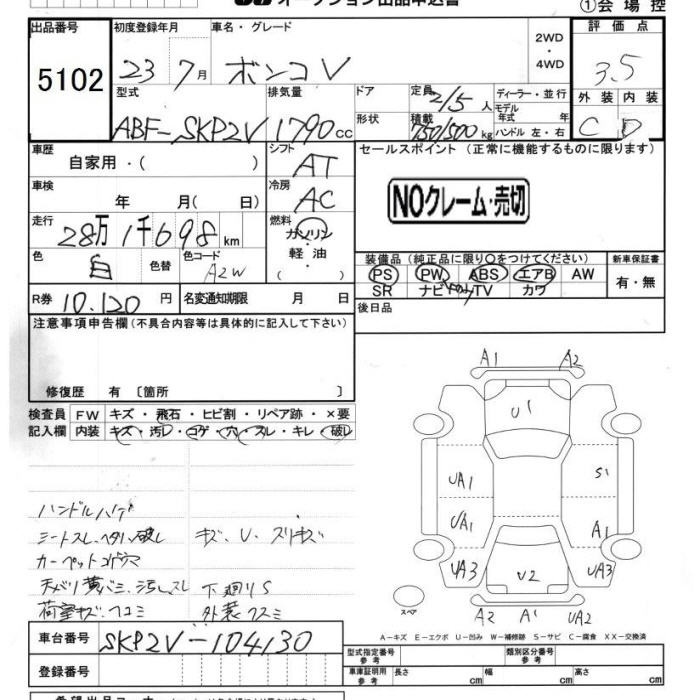 オークション出品申込書
①会場控
出品番号 初度登録年月 車名・グレード 2WD・4WD 評価点
5102 23年7月 ボンゴV 3.5
型式 排気量 ドア 定員 2/5人 ディーラー・並行 外装 内装
ABF-SKP2V 1790cc 形状 積載 750/500kg モデル年式 年 ハンドル 左・右 C D
車歴 シフト セールスポイント (正常に機能するものに限ります)
自家用・( ) AT
車検 冷房
年 月( 日) AC NOクレーム・売切
走行 燃料
28万1千698km ガソリン・軽油
色 色替 色コード 装備品(純正品に限り○をつけてください) 新車保証書
白 A2W PS PW ABS エアB AW 有・無
SR ナビ TV カワ
R券 10,120円 名変通知期限 月 日 後日品
注意事項申告欄(不具合内容等は具体的に記入して下さい)
修復歴 有 〔箇所 〕
検査員 FW キズ・飛石・ヒビ割・リペア跡・×要
記入欄 内装 キズ・汚レ・コゲ・穴・スレ・キレ・破レ
ハンドルハゲ
シートスレ、ヘタリ、破レ キズ、U、スリキズ
カーペット
天バリ黄バミ、汚レ、スレ 下廻りS
荷室キズ、ヘコミ 外装クスミ
A1 A2
U1
UA1 S1
UA1 A1
UA3 U2 UA3
スペア
A2 A1 UA2
A-キズ E-エクボ U-凹み W-補修跡 S-サビ C-腐食 XX-交換済
車台番号 SKP2V-104130
型式指定番号 参考 類別区分番号 参考
登録番号
車庫証明用 参考 長さ cm 幅 cm 高さ cm